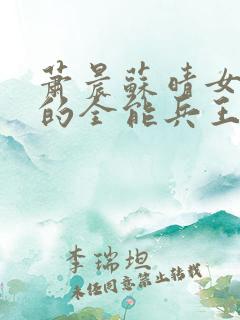 萧晨蘇晴女
的全能兵王
李瑞坦
未经同意禁止转载